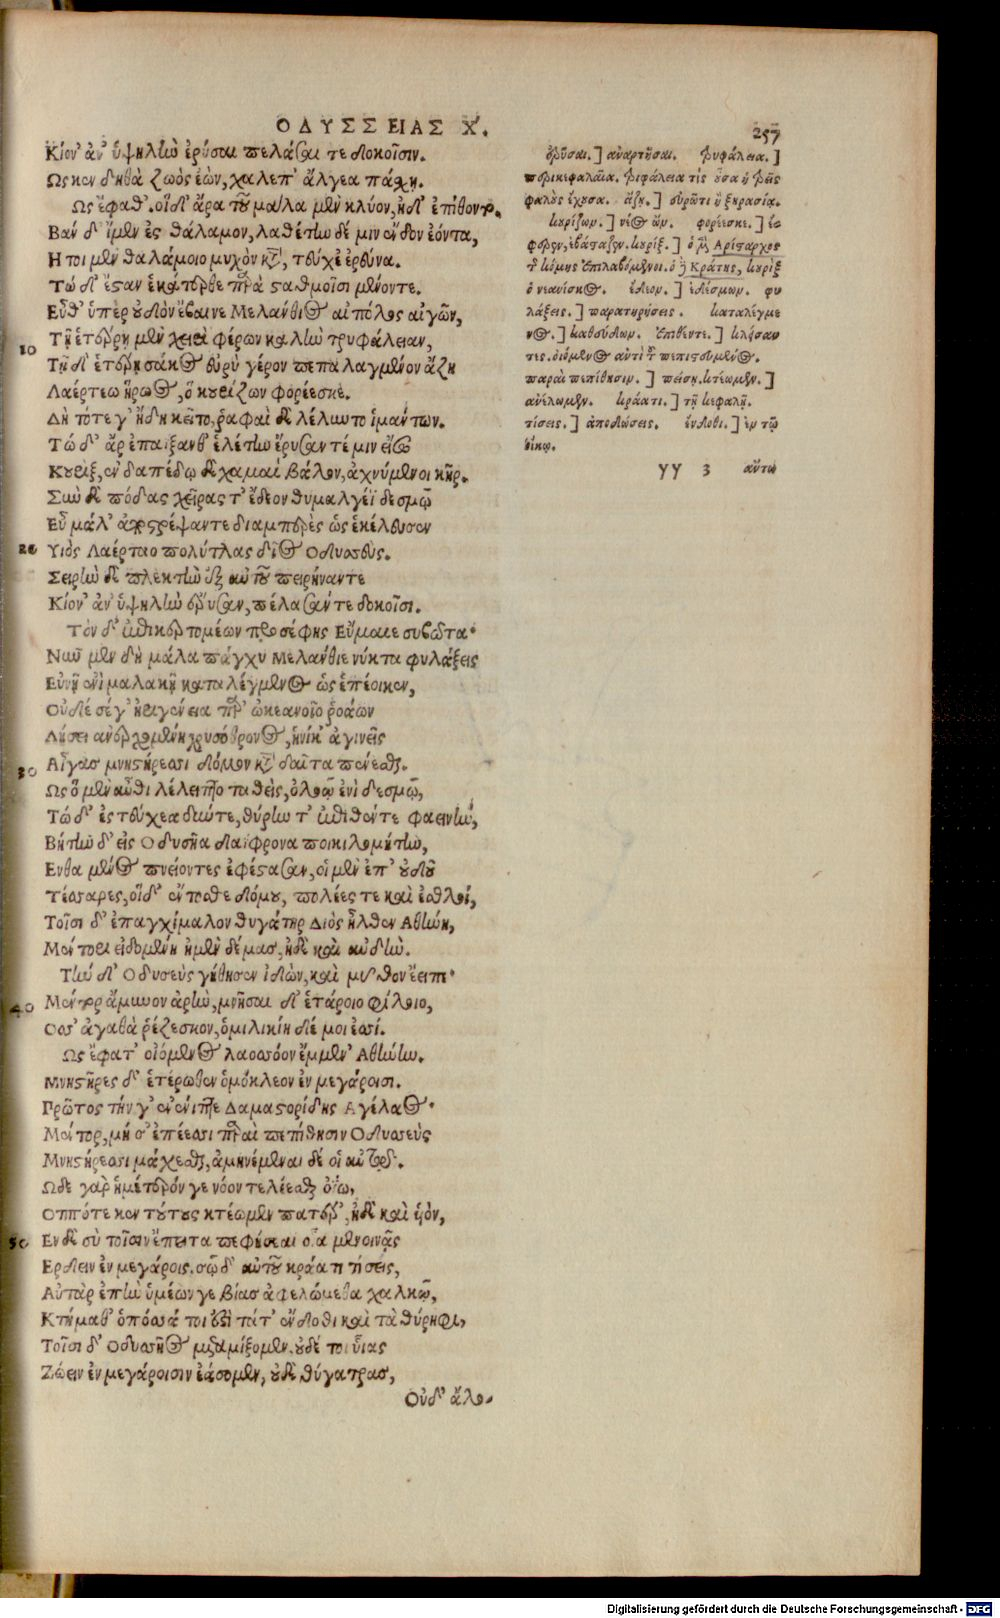 ΟΔΥΣΣΕΙΑΣ Χ.
257
Κίον' ἀν' ὑψηλὴν ἐρύσαι πελάσαι τε δοκοῖσιν.
Ως κεν δηθὰ ζωὸς ἐὼν, χαλεπ' ἄλγεα πάσχῃ.
Ως ἔφαθ'. οἱ δ' ἄρα τοῦ μάλα μὲν κλύον, ἠδ' ἐπίθοντο.
Βαν δ' ἴμεν ἐς θάλαμον, λαθέτην δέ μιν ἔνδον ἐόντα,
Η τοι μὲν θαλάμοιο μυχὸν κατὰ, τεύχε' ἐρεύνα.
Τὼ δ' ἔσταν ἑκάτερθε παρὰ σταθμοῖσι μένοντε.
Εὖθ' ὑπὲρ οὐδὸν ἔβαινε Μελάνθιος αἰπόλος αἰγῶν,
Τῇ ἑτέρῃ μὲν χειρὶ φέρων καλὴν τρυφάλειαν,
10
Τῇ δ' ἑτέρῃ σάκος εὐρὺ γέρον πεπαλαγμένον ἄζῃ
Λαέρτεω ἥρωος, ὃ κουρίζων φορέεσκε.
Δὴ τότε γ' ἤδη κεῖτο, ῥαφαὶ δὲ λέλυντο ἱμάντων.
Τὼ δ' ἄρ ἐπαΐξανθ' ἑλέτην ἔρυσάν τέ μιν εἴσω
Κουρὶξ, ἐν δαπέδῳ δὲ χαμαὶ βάλον, ἀχνύμενοι κῆρ.
Σὺν δὲ πόδας χεῖράς τ' ἔδεον θυμαλγέϊ δεσμῷ
Εὖ μάλ' ἀποστρέψαντε διαμπερὲς ὡς ἐκέλευσεν
20
Υιὸς Λαέρταο πολύτλας δῖος Οδυσσεύς.
Σειρὴν δὲ πλεκτὴν ἐξ αὐτοῦ πειρήναντε
Κίον' ἀν' ὑψηλὴν ἔρυσαν, πέλασάν τε δοκοῖσι.
Τὸν δ' ἐπικερτομέων προσέφης Εὔμαιε συβῶτα·
Νῦν μὲν δὴ μάλα πάγχυ Μελάνθιε νύκτα φυλάξεις
Εὐνῇ ἐνὶ μαλακῇ καταλέγμενος ὡς ἐπέοικεν,
Οὐδέ σέ γ' ἠριγένεια παρ' ὠκεανοῖο ῥοάων
Λήσει ἀνερχομένη χρυσόθρονος, ἡνίκ' ἀγινεῖς
30
Αἶγας μνηστήρεσσι δόμον κατὰ δαῖτα πένεσθαι.
Ως ὁ μὲν αὖθι λέλειπτο ταθεὶς, ὀλοῷ ἐνὶ δεσμῷ,
Τὼ δ' ἐς τεύχεα δύντε, θύρην τ' ἐπιθέντε φαεινὴν,
Βήτην δ' εἰς Οδυσῆα δαΐφρονα ποικιλομήτην,
Ενθα μένος πνείοντες ἐφέστασαν, οἱ μὲν ἐπ' οὐδοῦ
Τέσσαρες, οἱ δ' ἔντοσθε δόμου, πολέες τε καὶ ἐσθλοὶ,
Τοῖσι δ' ἐπαγχίμολον θυγάτηρ Διὸς ἦλθεν Αθήνη,
Μέντορι εἰδομένη ἠμὲν δέμας, ἠδὲ καὶ αὐδήν.
Τὴν δ' Οδυσεὺς γήθησεν ἰδὼν, καὶ μῦθον ἔειπε·
40
Μέντορ ἄμυνον ἀρὴν, μνῆσαι δ' ἑτάροιο φίλοιο,
Ος σ' ἀγαθὰ ῥέζεσκον, ὁμηλικίη δέ μοι ἐσσί.
Ως ἔφατ' οἰόμενος λαοσσόον ἔμμεν' Αθήνην.
Μνηστῆρες δ' ἑτέρωθεν ὁμόκλεον ἐν μεγάροισι.
Πρῶτος τήν γ' ἐνένιπτε Δαμαστορίδης Αγέλαος·
Μέντορ, μή σ' ἐπέεσσι παραὶ πεπίθησιν Οδυσσεὺς
Μνηστήρεσσι μάχεσθαι, ἀμυνέμεναι δέ οἱ αὐτῷ.
Ωδε γὰρ ἡμέτερόν γε νόον τελέεσθαι ὀΐω,
Οππότε κεν τούτους κτέωμεν πατέρ', ἠδὲ καὶ υἱὸν,
50
Εν δὲ σὺ τοῖσιν ἔπειτα πεφήσεαι οἷα μενοινᾷς
Ερδειν ἐν μεγάροις. σῷ δ' αὐτοῦ κράατι τίσεις,
Αὐτὰρ ἐπὴν ὑμέων γε βίας ἀφελώμεθα χαλκῷ,
Κτήμαθ' ὁπόσσά τοι ἐστὶ τάτ' ἔνδοθι καὶ τὰ θύρηφι,
Τοῖσι δ' Οδυσσῆος μεταμίξομεν. οὐδέ τοι υἷας
Ζώειν ἐν μεγάροισιν ἐάσομεν, οὐδὲ θύγατρας,
Οὐδ' ἄλο-
ἐρῦσαι.] ἀναρτῆσαι. τρυφάλεια.]
περικεφαλαία. τριφάλεια τὶς οὖσα ἡ τρεῖς
φάλους ἔχουσα. ἄζῃ.] εὐρῶτι ἢ ξηρασίᾳ.
κουρίζων.] νέος ὤν. φορέεσκε.] ἐ-
φόρει, ἐβάσταζεν. κουρίξ.] ὁ μὲν Αρίσταρχος
τῆς κόμης ἐπιλαβόμενοι. ὁ δὲ Κράτης, κουρὶξ
ὁ νεανίσκος. ἔδεον.] ἐδέσμων. φυ
λάξεις.] παρατηρήσεις. καταλέγμε
νος.] καθεύδων. ἐπιθέντε.] κλείσαν
τες. οἰόμενος ἀντὶ τοῦ πεπεισμένος.
παραὶ πεπίθησιν.] πείσῃ. κτέωμεν.]
ἀνέλωμεν. κράατι.] τῇ κεφαλῇ.
τίσεις.] ἀποδώσεις. ἔνδοθι.] ἐν τῷ
οἴκῳ.
γγ 3 αὐτὼ
Digitalisierung gefördert durch die Deutsche Forschungsgemeinschaft - DFG